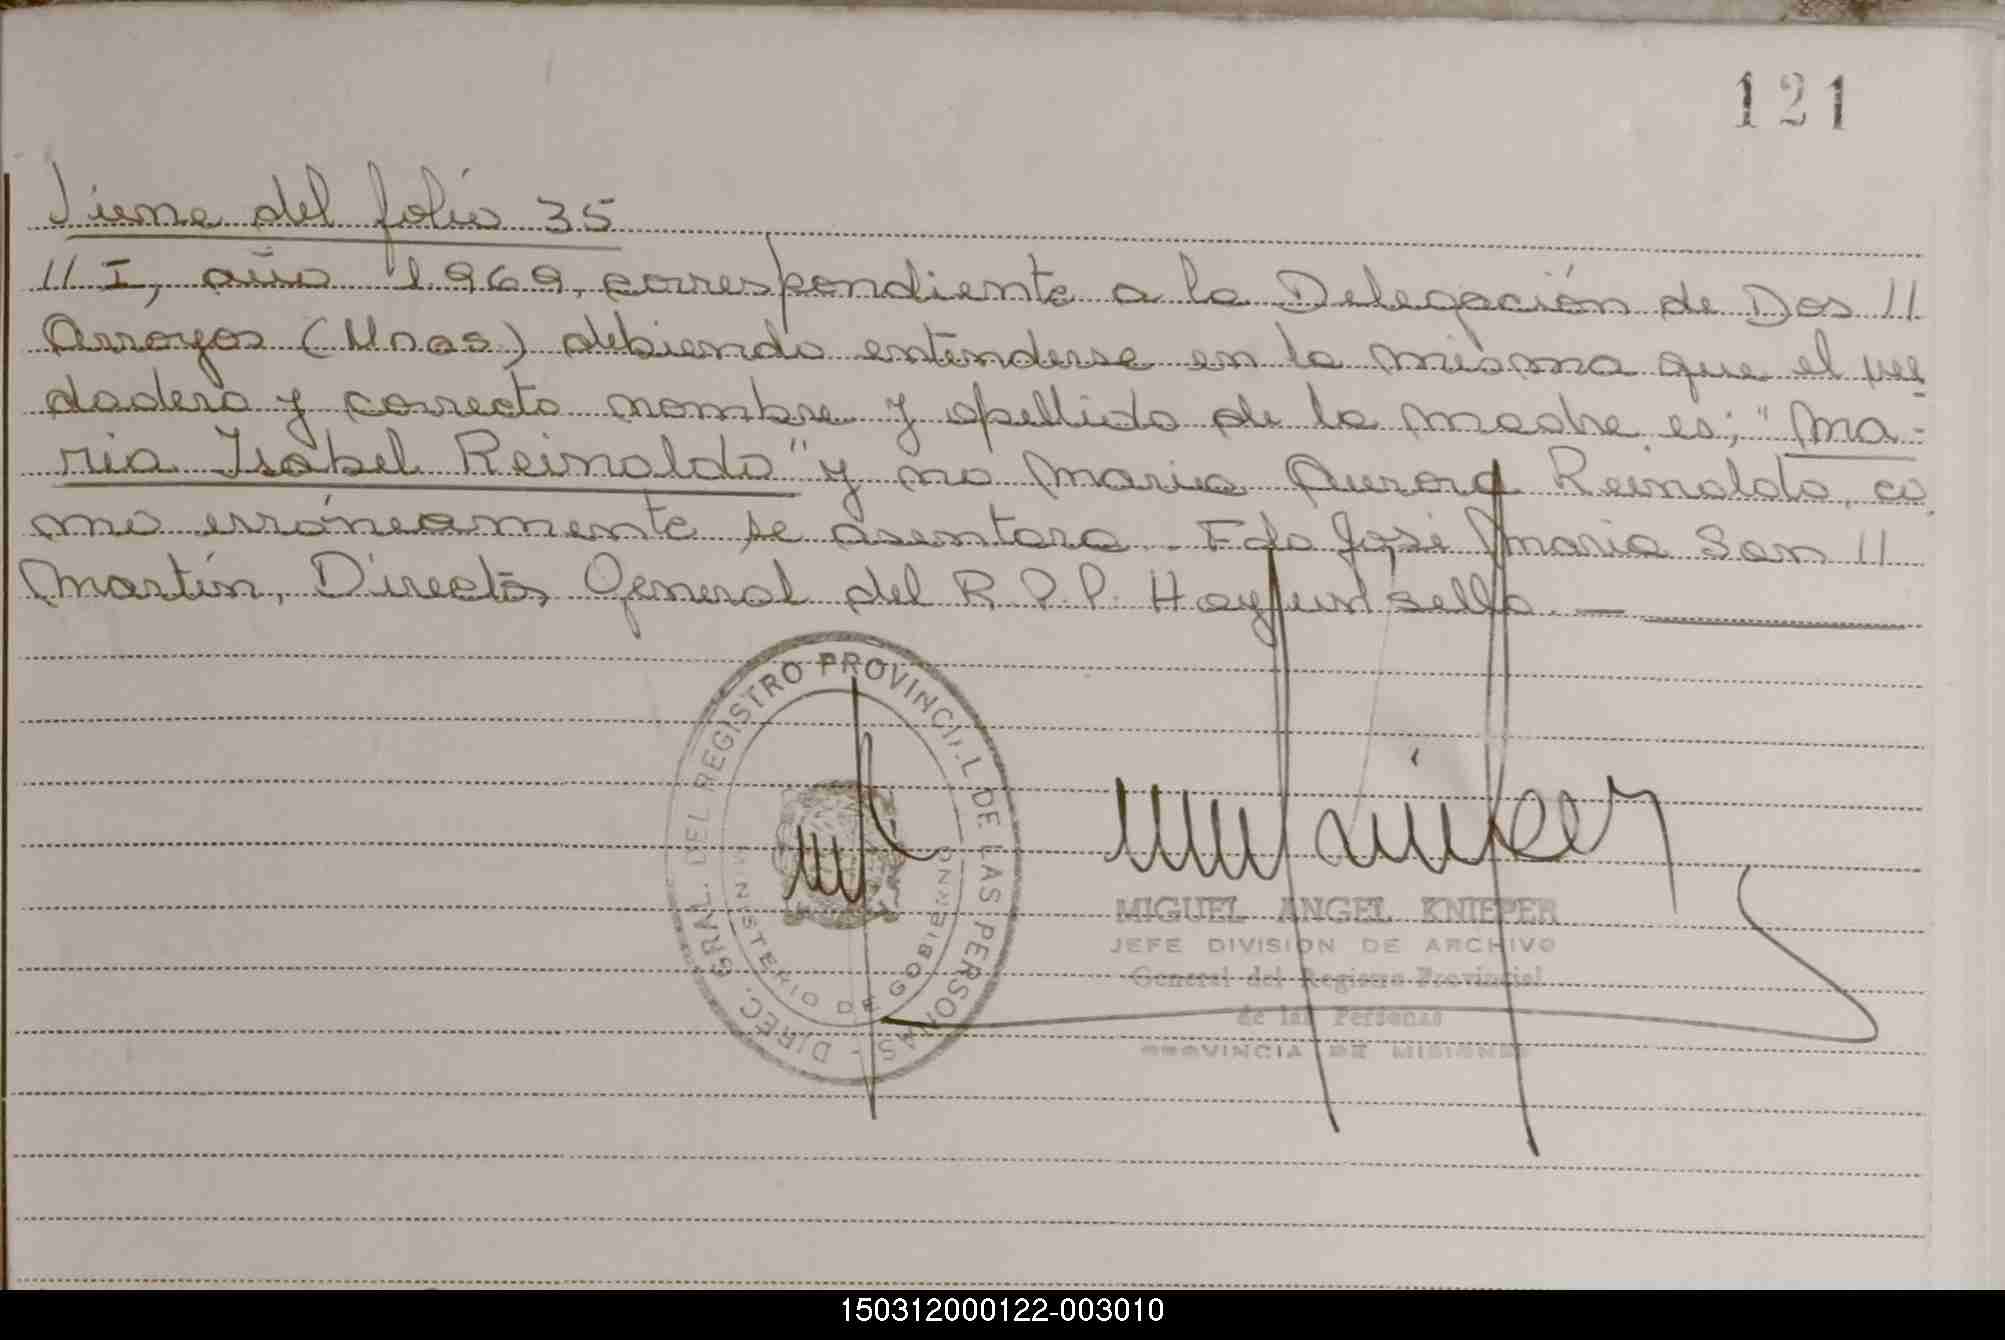 121
Viene del folio 35
// I, año 1969, correspondiente a la Delegación de Dos //
Arroyos (Mnes) debiendo entenderse en la misma que el ver
dadero y correcto nombre y apellido de la madre es; "Ma-
ria Isabel Reinaldo" y no Maria Aurora Reinaldo, co
mo erróneamente se asentara. Fdo José Maria San //
Martín, Director General del R.P.P. Hay un sello. —
DIREC. GRAL. DEL REGISTRO PROVINCIAL DE LAS PERSONAS -
MINISTERIO DE GOBIERNO
MIGUEL ANGEL KNIEPER
JEFE DIVISION DE ARCHIVO
General del Registro Provincial
de las Personas
PROVINCIA DE MISIONES
150312000122-003010